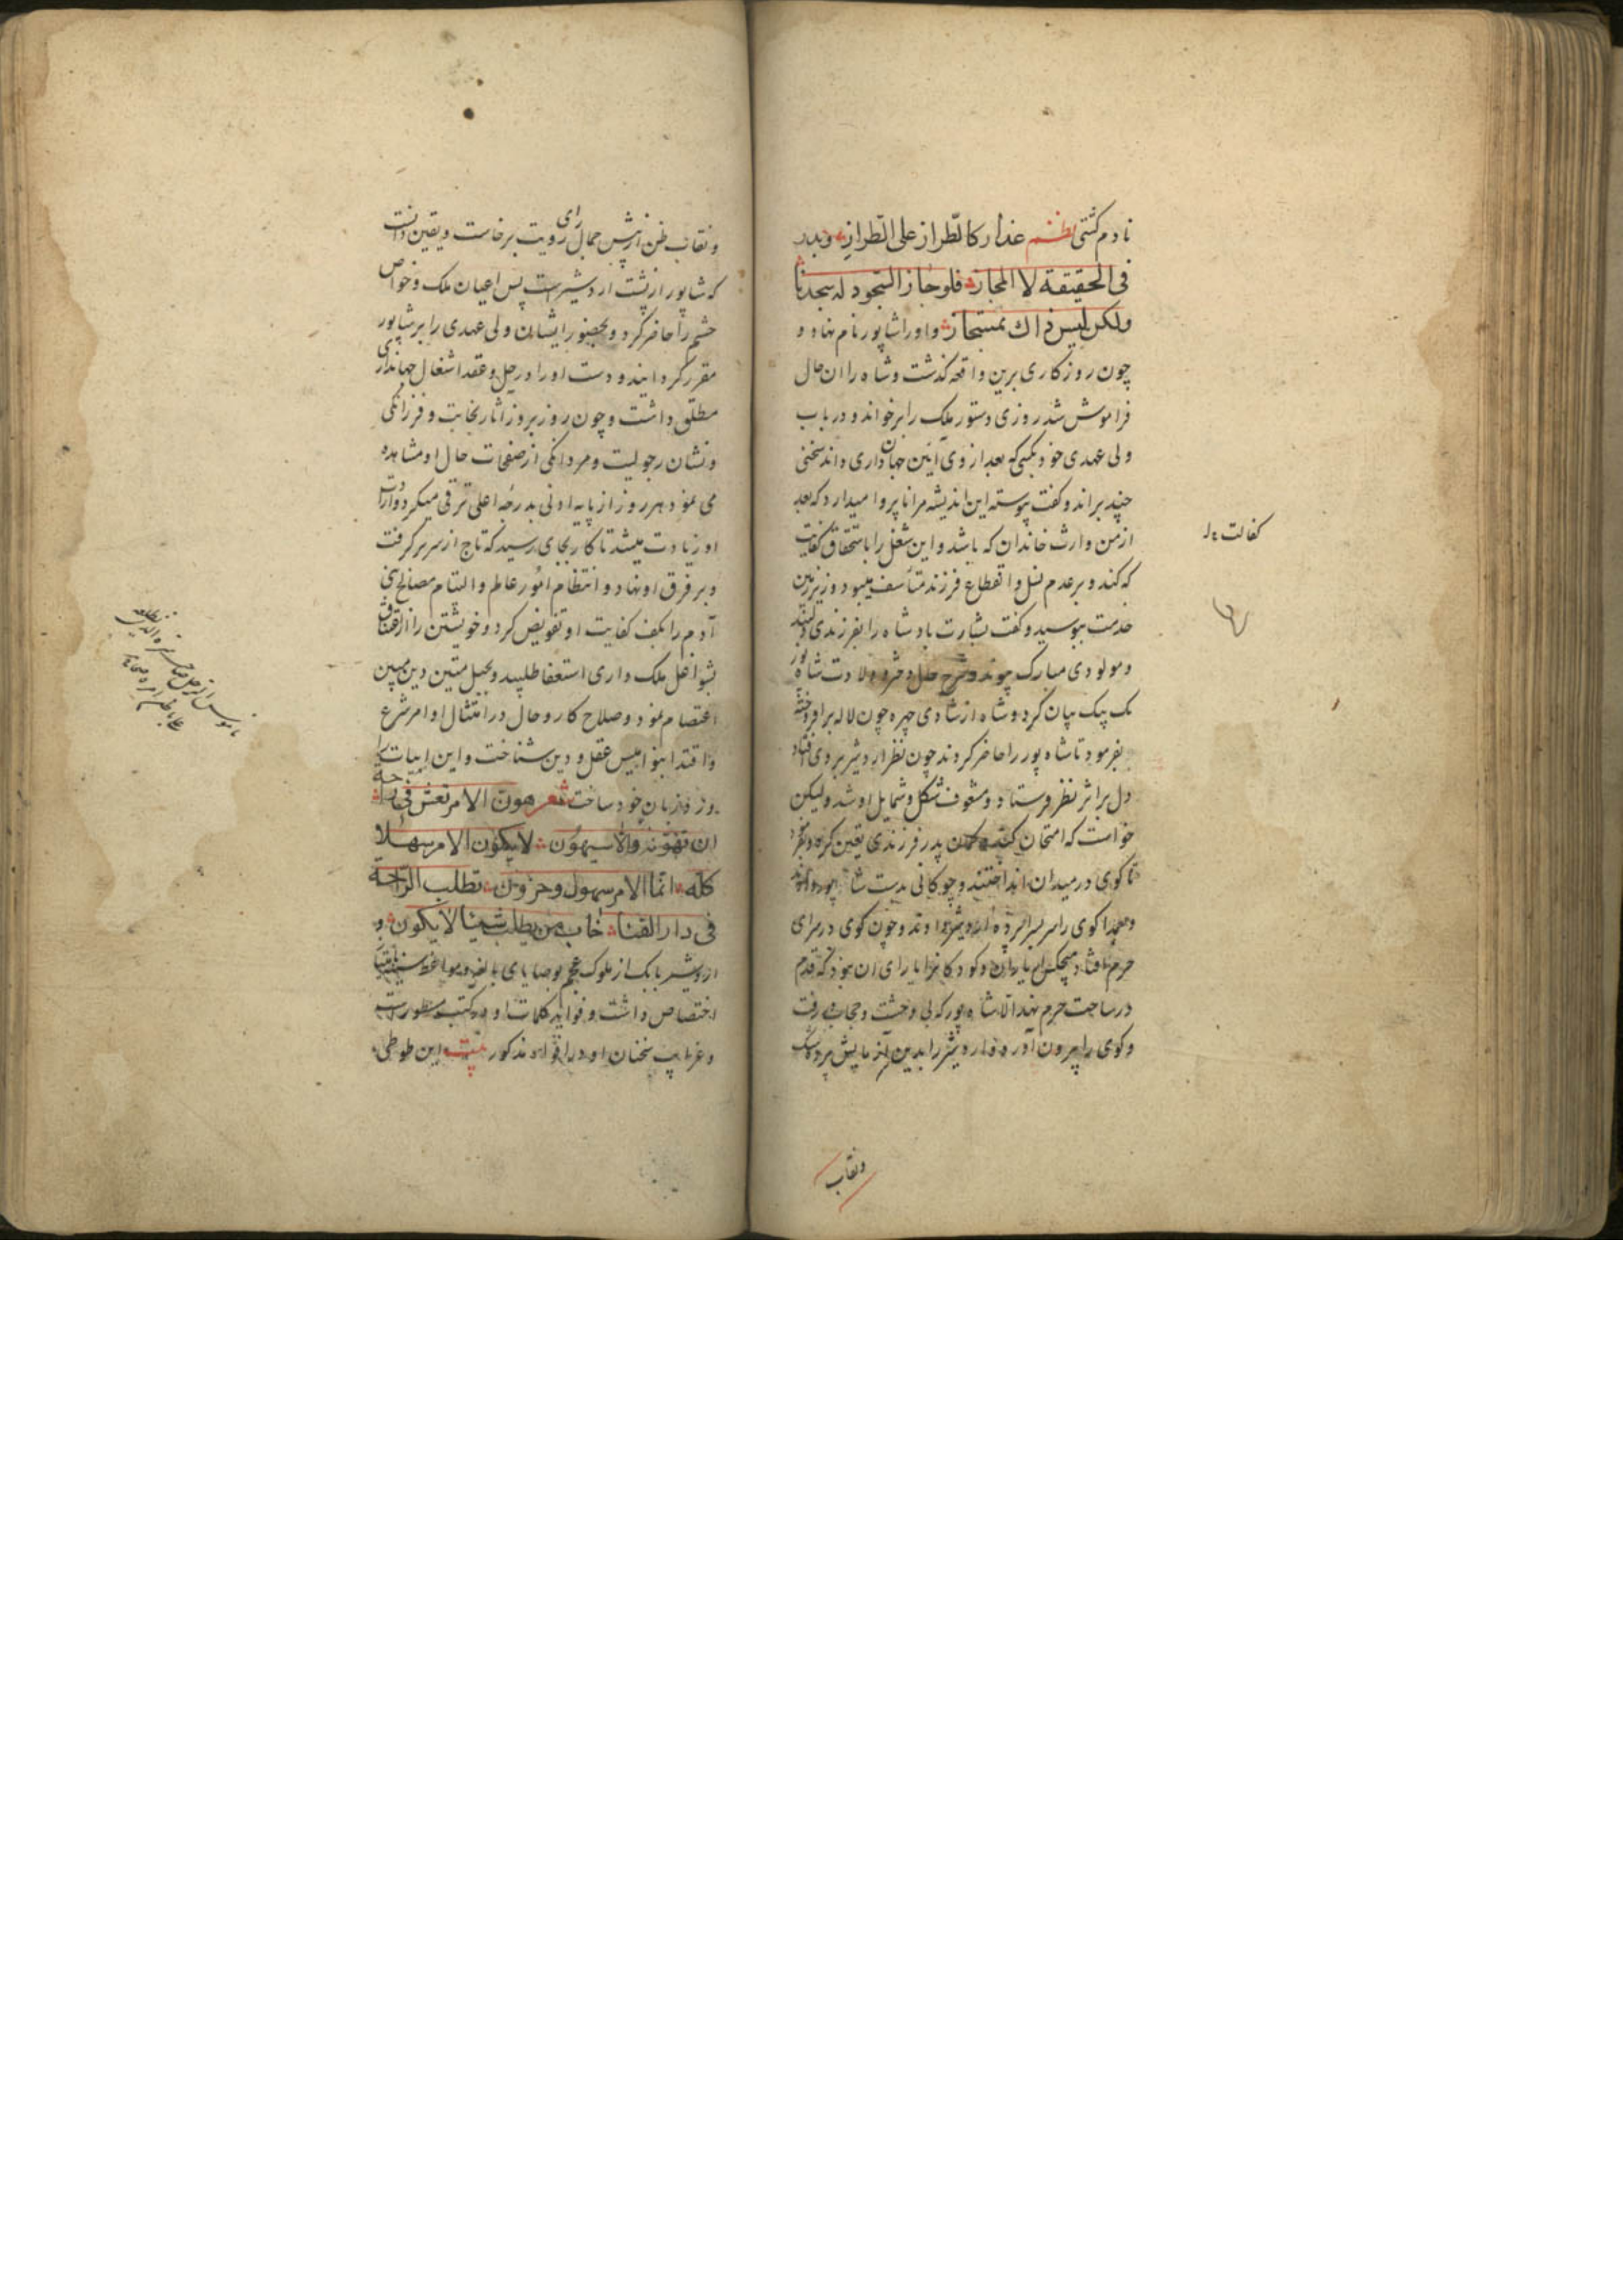 نادم کشتی نظم عذار کالطراز علی الطراز و بدر
فی الحقیقة لا المجاز فلو جاز السجود له سجدنا
ولکن لیس ذاک بمستجاز و او را شاپور نام نهاد و
چون روزکاری برین واقعه کذشت و شاه را ان حال
فراموش شد روزی دستور ملک را برخواند و در باب
ولی عهدی خود بکسی که بعد از وی آئین جهان داری داند سخنی
چند براند و کفت پیوسته این اندیشه مرا ناپروا میدارد که بعد
از من وارث خاندان که باشد و این شغل را باستحقاق کفایت
که کند و بر عدم نسل و انقطاع فرزند متأسف میبود وزیر زمین
خدمت ببوسید و کفت بشارت باد شاه را بفرزندی دلبند
و مولودی مبارک پیوند و شرح حال دختر و ولادت شاه پور
یک بیک بیان کرد و شاه از شادی چهره چون لاله برافروخته
بفرمود تا شاه پور را حاضر کردند چون نظر اردشیر بر وی افتاد
دل بر اثر نظر فرستاد و مشعوف شکل و شمایل او شد ولیکن
خواست که امتحان کند پدر فرزندی یقین کردد بفرمود
تا کوی در میدان انداختند و چوکانی بدست شاه پور دادند
و عمدا کوی را سرای
حرم افتاد هیچکس از یاران و کودکانرا یارای ان نبود که قدم
در ساحت حرم نهد الا شاه پور که بی وحشت و حجاب برفت
و کوی را بیرون آورد و اردشیر را بدین آزمایش پرده شک
کفالت
و نقاب
و نقاب ظن از پیش جمال رای رویت برخاست و یقین دانست
که شاپور از پشت اردشیرست پس اعیان ملک و خواص
حشم را حاضر کرد و بحضور ایشان ولی عهدی را بر شاپور
مقرر کردانید و دست او را در حل و عقد اشغال جهانداری
مطلق داشت و چون روز بروز آثار نجابت و فرزانکی
و نشان رجولیت و مردانکی از صفحات حال او مشاهده
می نمود هر روز از پایه ادنی بدرجه اعلی ترقی میکرد و ارادت
او زیادت میشد تا کار بجای رسید که تاج از سر برکرفت
و بر فرق او نهاد و انتظام امور عالم و التیام مصالح بنی
آدم را بکف کفایت او تفویض کرد و خویشتن را از
شواغل ملک داری استعفا طلبید و بحبل متین دین مبین
اعتصام نمود و صلاح کار و حال در امتثال اوامر شرع
و اقتدا بنوامیس عقل و دین شناخت و این ابیات را
ورد زبان خود ساخت شعر هون الامر تعش فی راحة
ان تهونه والا سیهون لا یکون الامر سهلا
کله انما الامر سهول و حزون تطلب الراحة
فی دار الفنا خاب من یطلب شیئا لا یکون و
اردشیر بابک از ملوک عجم بوصایای بالغه و مواعظ
اختصاص داشت و فواید کلمات او در کتب مسطورست
و غرایب سخنان او در افواه مذکور بیت این طوطی